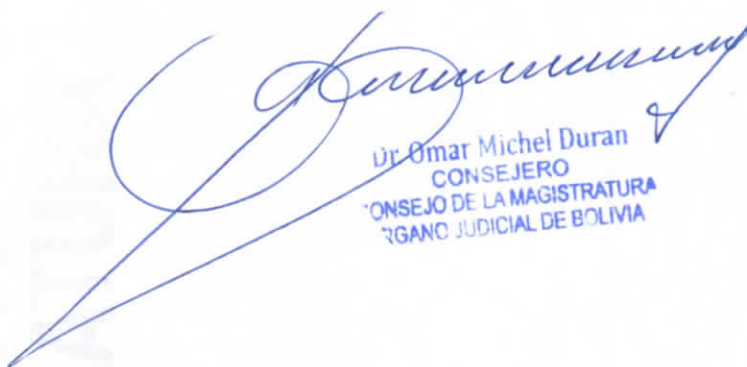 Dr. Omar Michel Duran
CONSEJERO
CONSEJO DE LA MAGISTRATURA
ORGANO JUDICIAL DE BOLIVIA